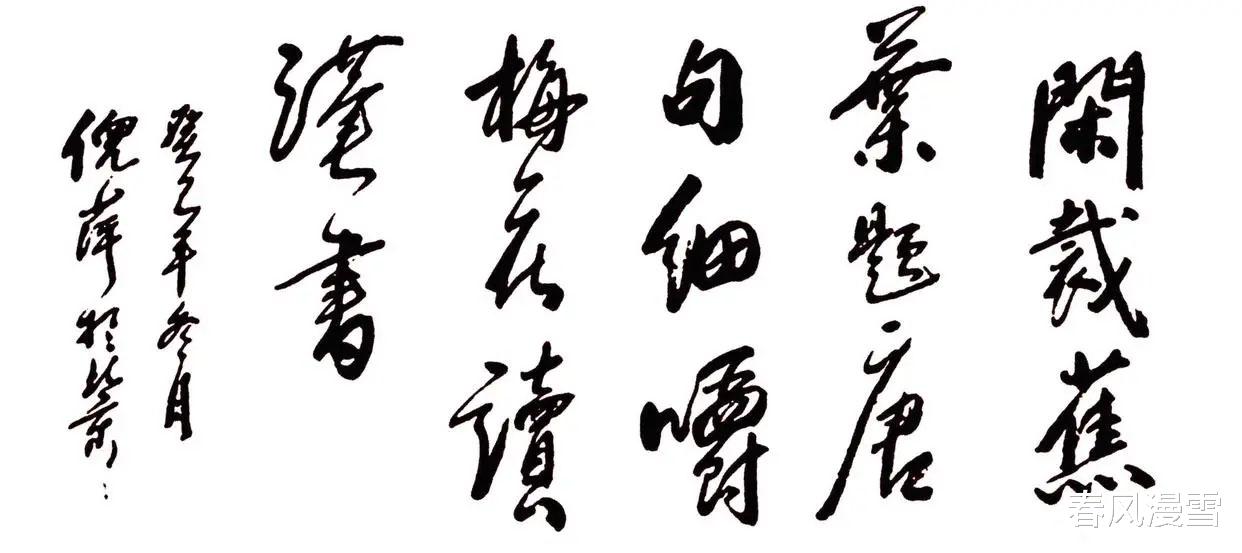 閑裁蕉
葉題唐
句細嚼
梅花讀
漢書
癸巳年冬月
倪萍於北京
春风漫雪